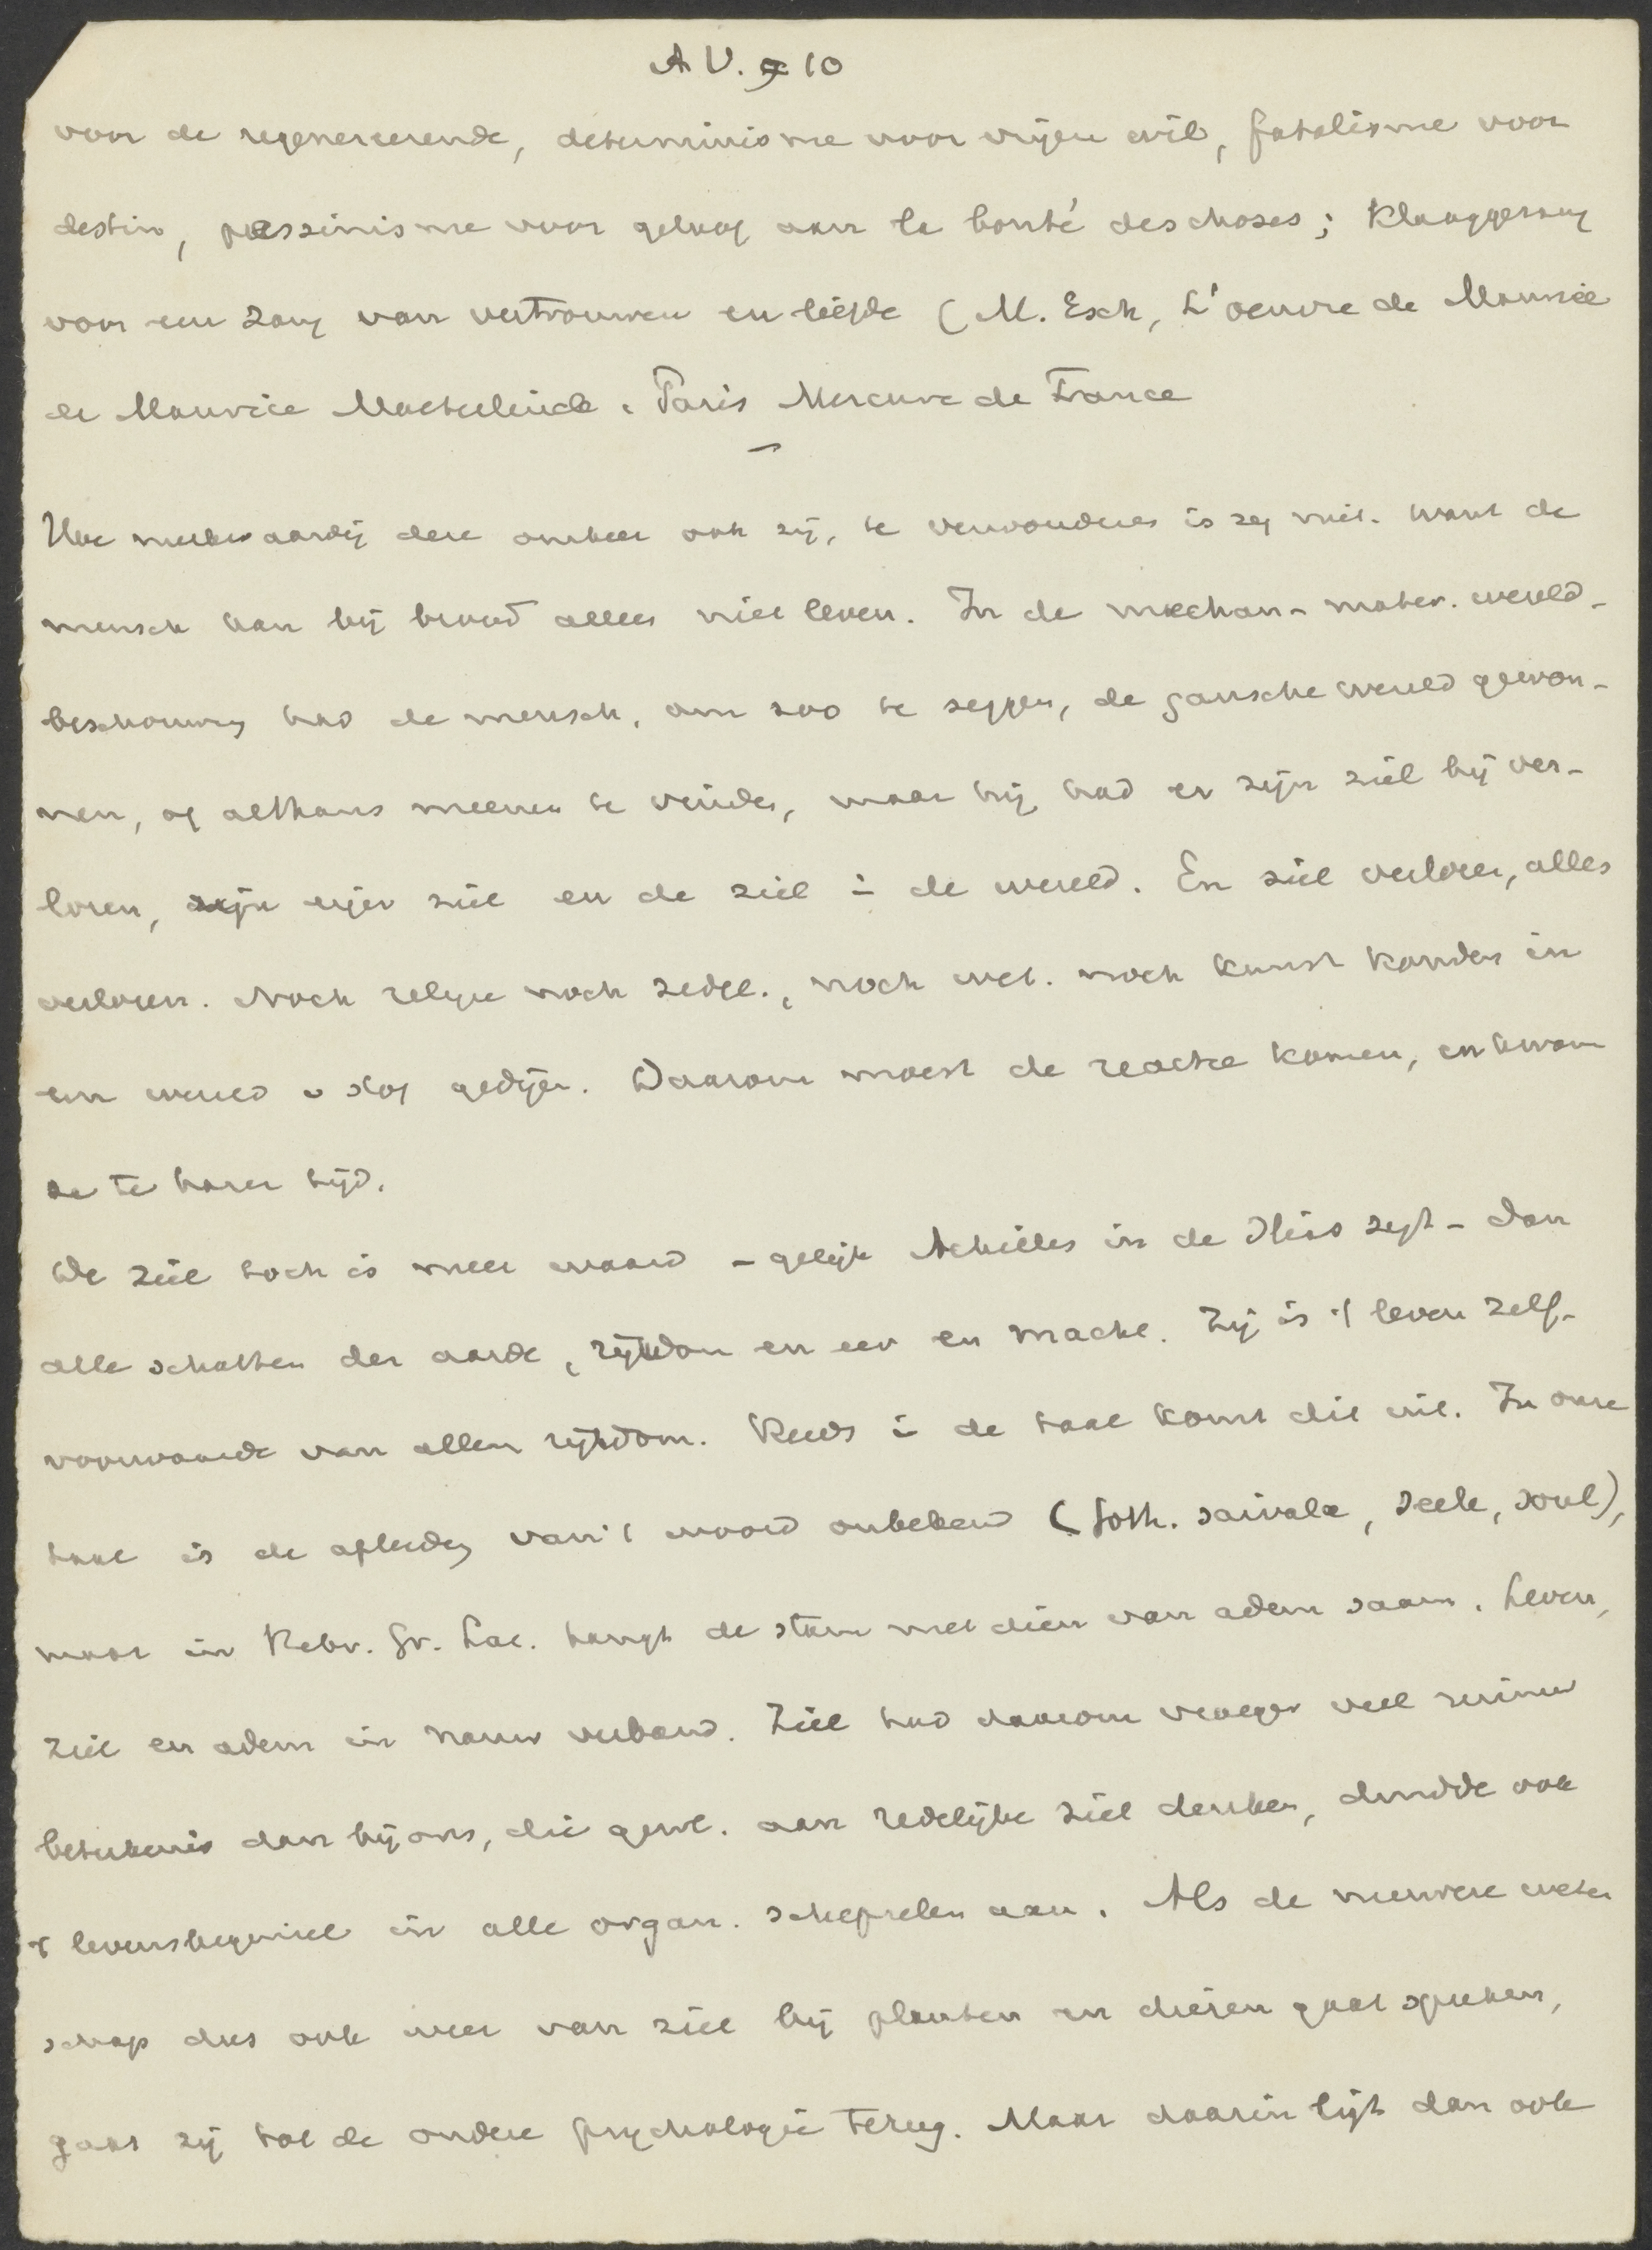 A V. 9 10
voor de regenereerende, determinisme voor vrijen wil, fatalisme voor
destin, pessimisme voor geloof aan la bonté des choses; klaaggezang
voor een zang van vertrouwen en liefde (M. Esch, L'oeuvre de Maurice
de Maurice Maeterlinck. Paris Mercure de France
—
Hoe merkwaardig deze omkeer ook zij, te verwonderen is zij niet. Want de
mensch kan bij brood alleen niet leven. In de mechan-mater. wereld-
beschouwing had de mensch, om zoo te zeggen, de gansche wereld gewon-
nen, of althans meenen te vinden, maar hij had er zijn ziel bij ver-
loren, zijn eigen ziel en de ziel i de wereld. En ziel verloren, alles
verloren. Noch religie noch zedel., noch wet. noch kunst konden in
een wereld v stof gedijen. Daarom moest de reactie komen, en kwam
ze te harer tijd.
De ziel toch is meer waard - gelijk Achilles in de Ilias zegt - dan
alle schatten der aarde, rijkdom en eer en macht. Zij is 't leven zelf-
voorwaarde van allen rijkdom. Reeds i de taal komt dit uit. In onze
taal is de afleiding van 't woord onbekend (Goth. saivala, Seele, soul),
maar in Hebr. Gr. Lat. hangt de stam met dien van adem saam. Leven,
ziel en adem in nauw verband. Ziel had daarom vroeger veel ruimer
beteekenis dan bij ons, die gewl. aan redelijke ziel denken, duidde ook
't levensbeginsel in alle organ. schepselen aan. Als de nieuwere weten
schap dus ook weer van ziel bij planten en dieren gaat spreken,
gaat zij tot de oudere psychologie terug. Maar daarin ligt dan ook